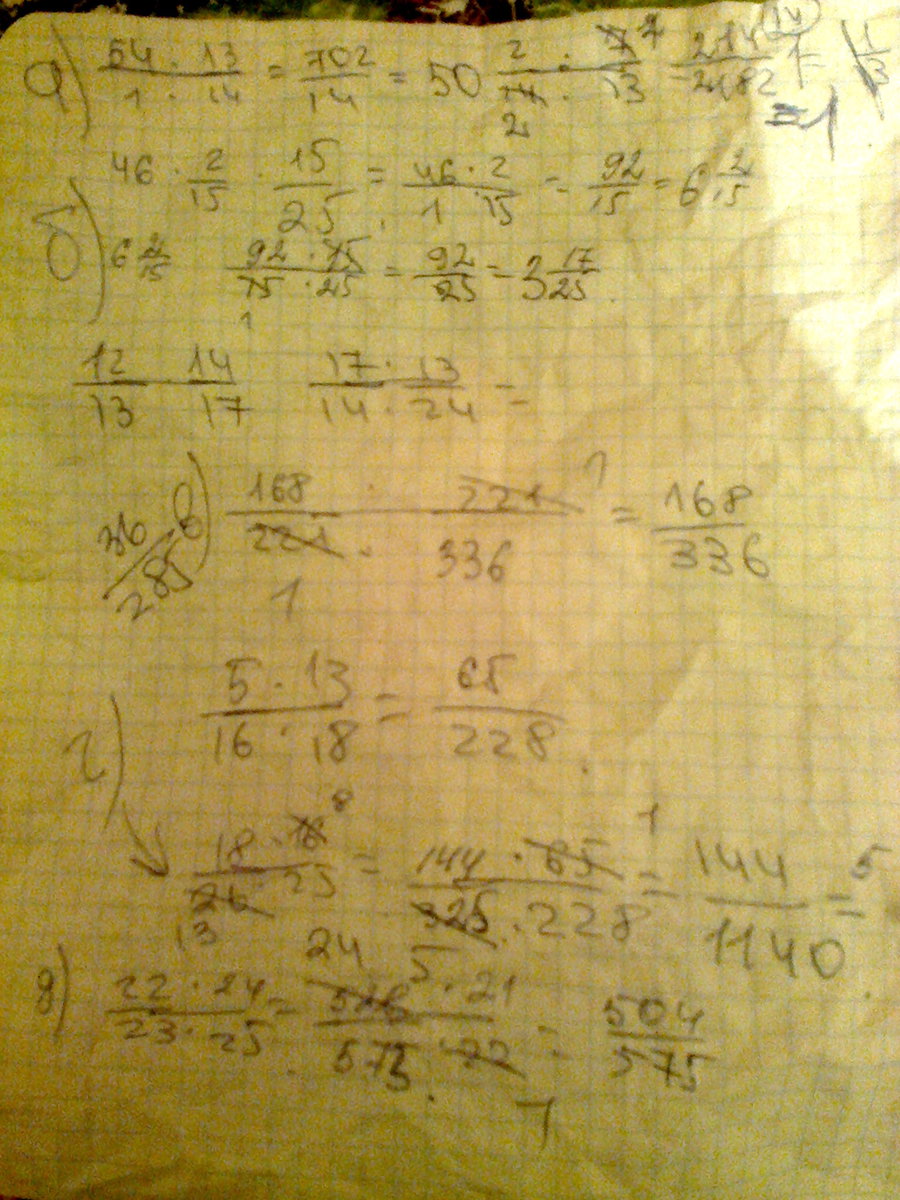 а) 54 · 13 / 1 · 14 = 702 / 14 = 50 2 / 14 2 · 7 / 13
= 1
46 · 2/15 · 15/25 = 46 · 2 / 1 · 15 = 92/15 = 6 2/15
б) 6 2/15 92 · 15 / 15 · 25 = 92/25 = 3 17/25
1
12/13 14/17 17 · 13 / 14 · 24 =
36/285 в) 168 · 221 / 221 · 336 = 168/336
1 1
г) 5 · 13 / 16 · 18 = 65/228
18 · 16 8 / 26 13 · 25 = 144 · 65 1 / 325 5 · 228 = 144/1140 = 5
д) 22 · 24 / 23 · 25 = 24 528 · 21 / 575 · 22 = 504/575
1